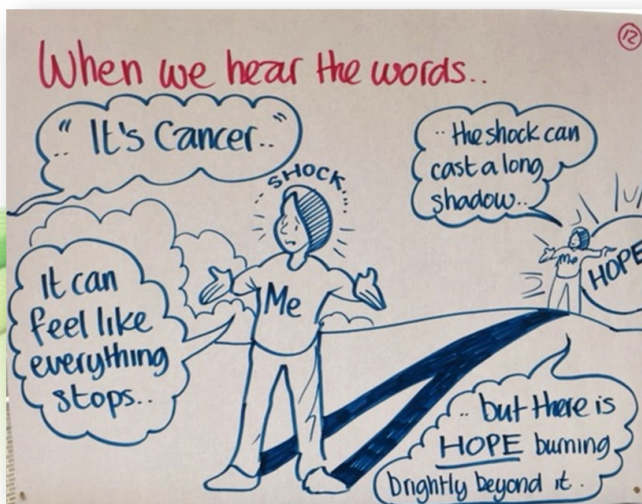 12
When we hear the words..
".. It's Cancer.. "
SHOCK...
.. the shock can
cast a long
shadow..
Me
HOPE
It can
feel like
everything
stops..
Me
.. but there is
HOPE burning
brightly beyond it.